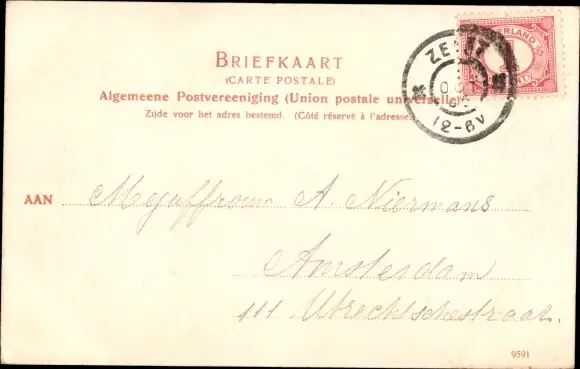 BRIEFKAART
(CARTE POSTALE)
Algemeene Postvereeniging (Union postale universelle)
Zijde voor het adres bestemd. (Côté réservé à l'adresse)
ZEIST
12-6V
AAN Mejuffrouw A. Niermans
Amsterdam
111 Utrechtschestraat.
9591